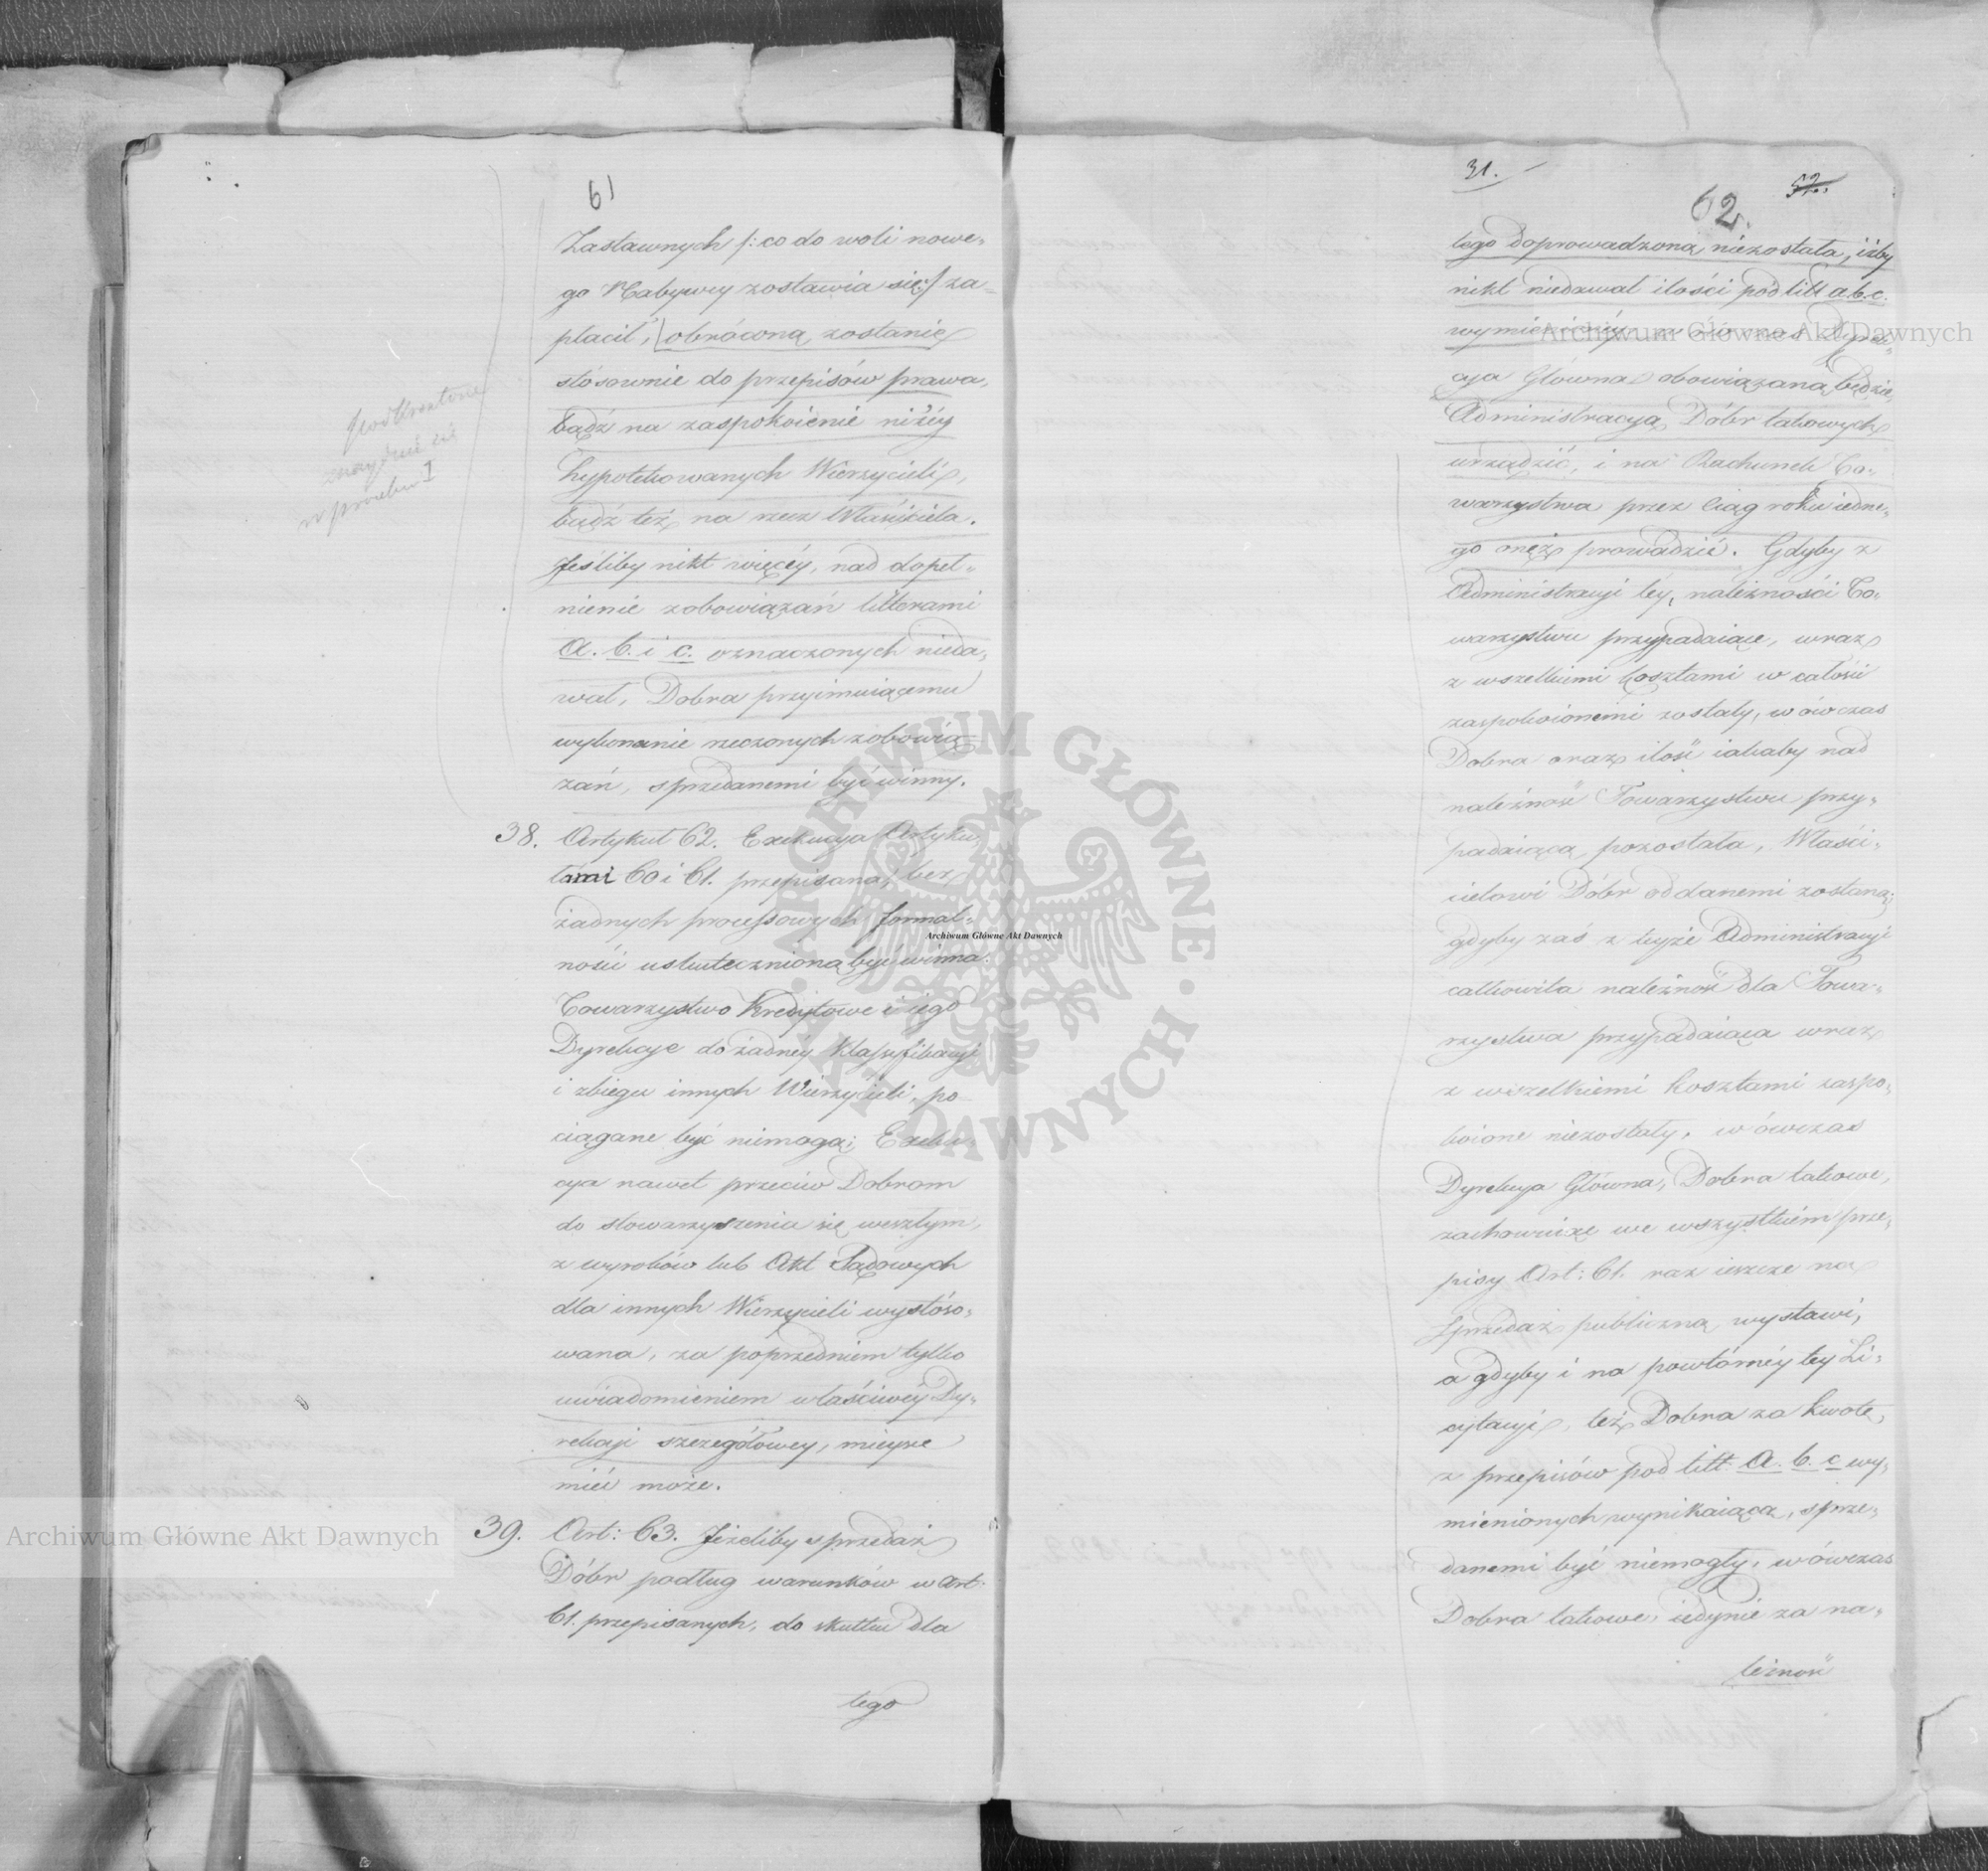 61
Zastawnych /: co do woli nowe,
go Nabywcy zostawia się :/ za,
płacił, obróconą zostanie
stósownie do przepisów prawa,
bądź na zaspokoienie niżéy
hypotekowanych Wierzycieli,
bądź też na rzecz Właściciela.
Jeśliby nikt więcéy, nad dopeł,
nienie zobowiązań litterami
a. b. i c. oznaczonych nieda,
wał, Dobra przyimuiącemu
wykonanie rzeczonych zobowią
zań, sprzedanemi być winny.
podkreślone
znayduie się
w proiekcie I
38. Artykuł 62. Exekucya Artyku,
łami 60 i 61. przepisana, bez
żadnych processowych formal,
ności uskutecznioną być winna.
Towarzystwo Kredytowe i iego
Dyrekcye do żadney Klassyfikacyi
i zbiegu innych Wierzycieli, po
ciągane być niemogą; Exeku,
cya nawet przeciw Dobrom
do stowarzyszenia się weszłym,
z wyroków lub Akt Sądowych
dla innych Wierzycieli wystóso,
wana, za poprzedniem tylko
uwiadomieniem właściwéy Dy,
rekcyi szczegółowey, mieysce
mieć może.
39. Art: 63. Jeżeliby sprzedaż
Dóbr podług warunków w Art:
61. przepisanych, do skutku dla
tego
31.
52.
62.
tego doprowadzoną niezostała, iżby
nikt niedawał ilości pod litt a. b. c.
wymienionéy, wówczas Dyrek,
cya Główna obowiązaną będzie,
Administracyą Dóbr takowych
urządzić, i na Rachunek To,
warzystwa przez ciąg roku iedne,
go onęż prowadzić. Gdyby z
Administracyi téy, należności To,
warzystwu przypadaiące, wraz
z wszelkiemi kosztami w całości
zaspokoionemi zostały, wówczas
Dobra oraz ilość iakaby nad
należność Towarzystwu przy,
padaiącą pozostała, Właści,
cielowi Dóbr oddanemi zostaną;
gdyby zaś z teyże Administracyi
całkowita należność dla Towa,
rzystwa przypadaiąca wraz
z wszelkiemi kosztami zaspo,
koione niezostały, wówczas
Dyrekcya Główna, Dobra takowe,
zachowuiąc we wszystkiém prze,
pisy Art: 61. raz ieszcze na
sprzedaż publiczną wystawi,
a gdyby i na powtórnéy téy Li,
cytacyi, też Dobra za kwotę,
z przepisów pod litt. a. b. c wy,
mienionych wynikaiącą, sprze,
danemi być niemogły, wówczas
Dobra takowe, iedynie za na,
leżność
Archiwum Główne Akt Dawnych
Archiwum Główne Akt Dawnych
Archiwum Główne Akt Dawnych
ARCHIWUM GŁÓWNE · AKT DAWNYCH ·